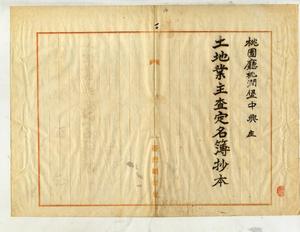 桃園廳桃澗堡中興庄
土地業主査定名簿抄本